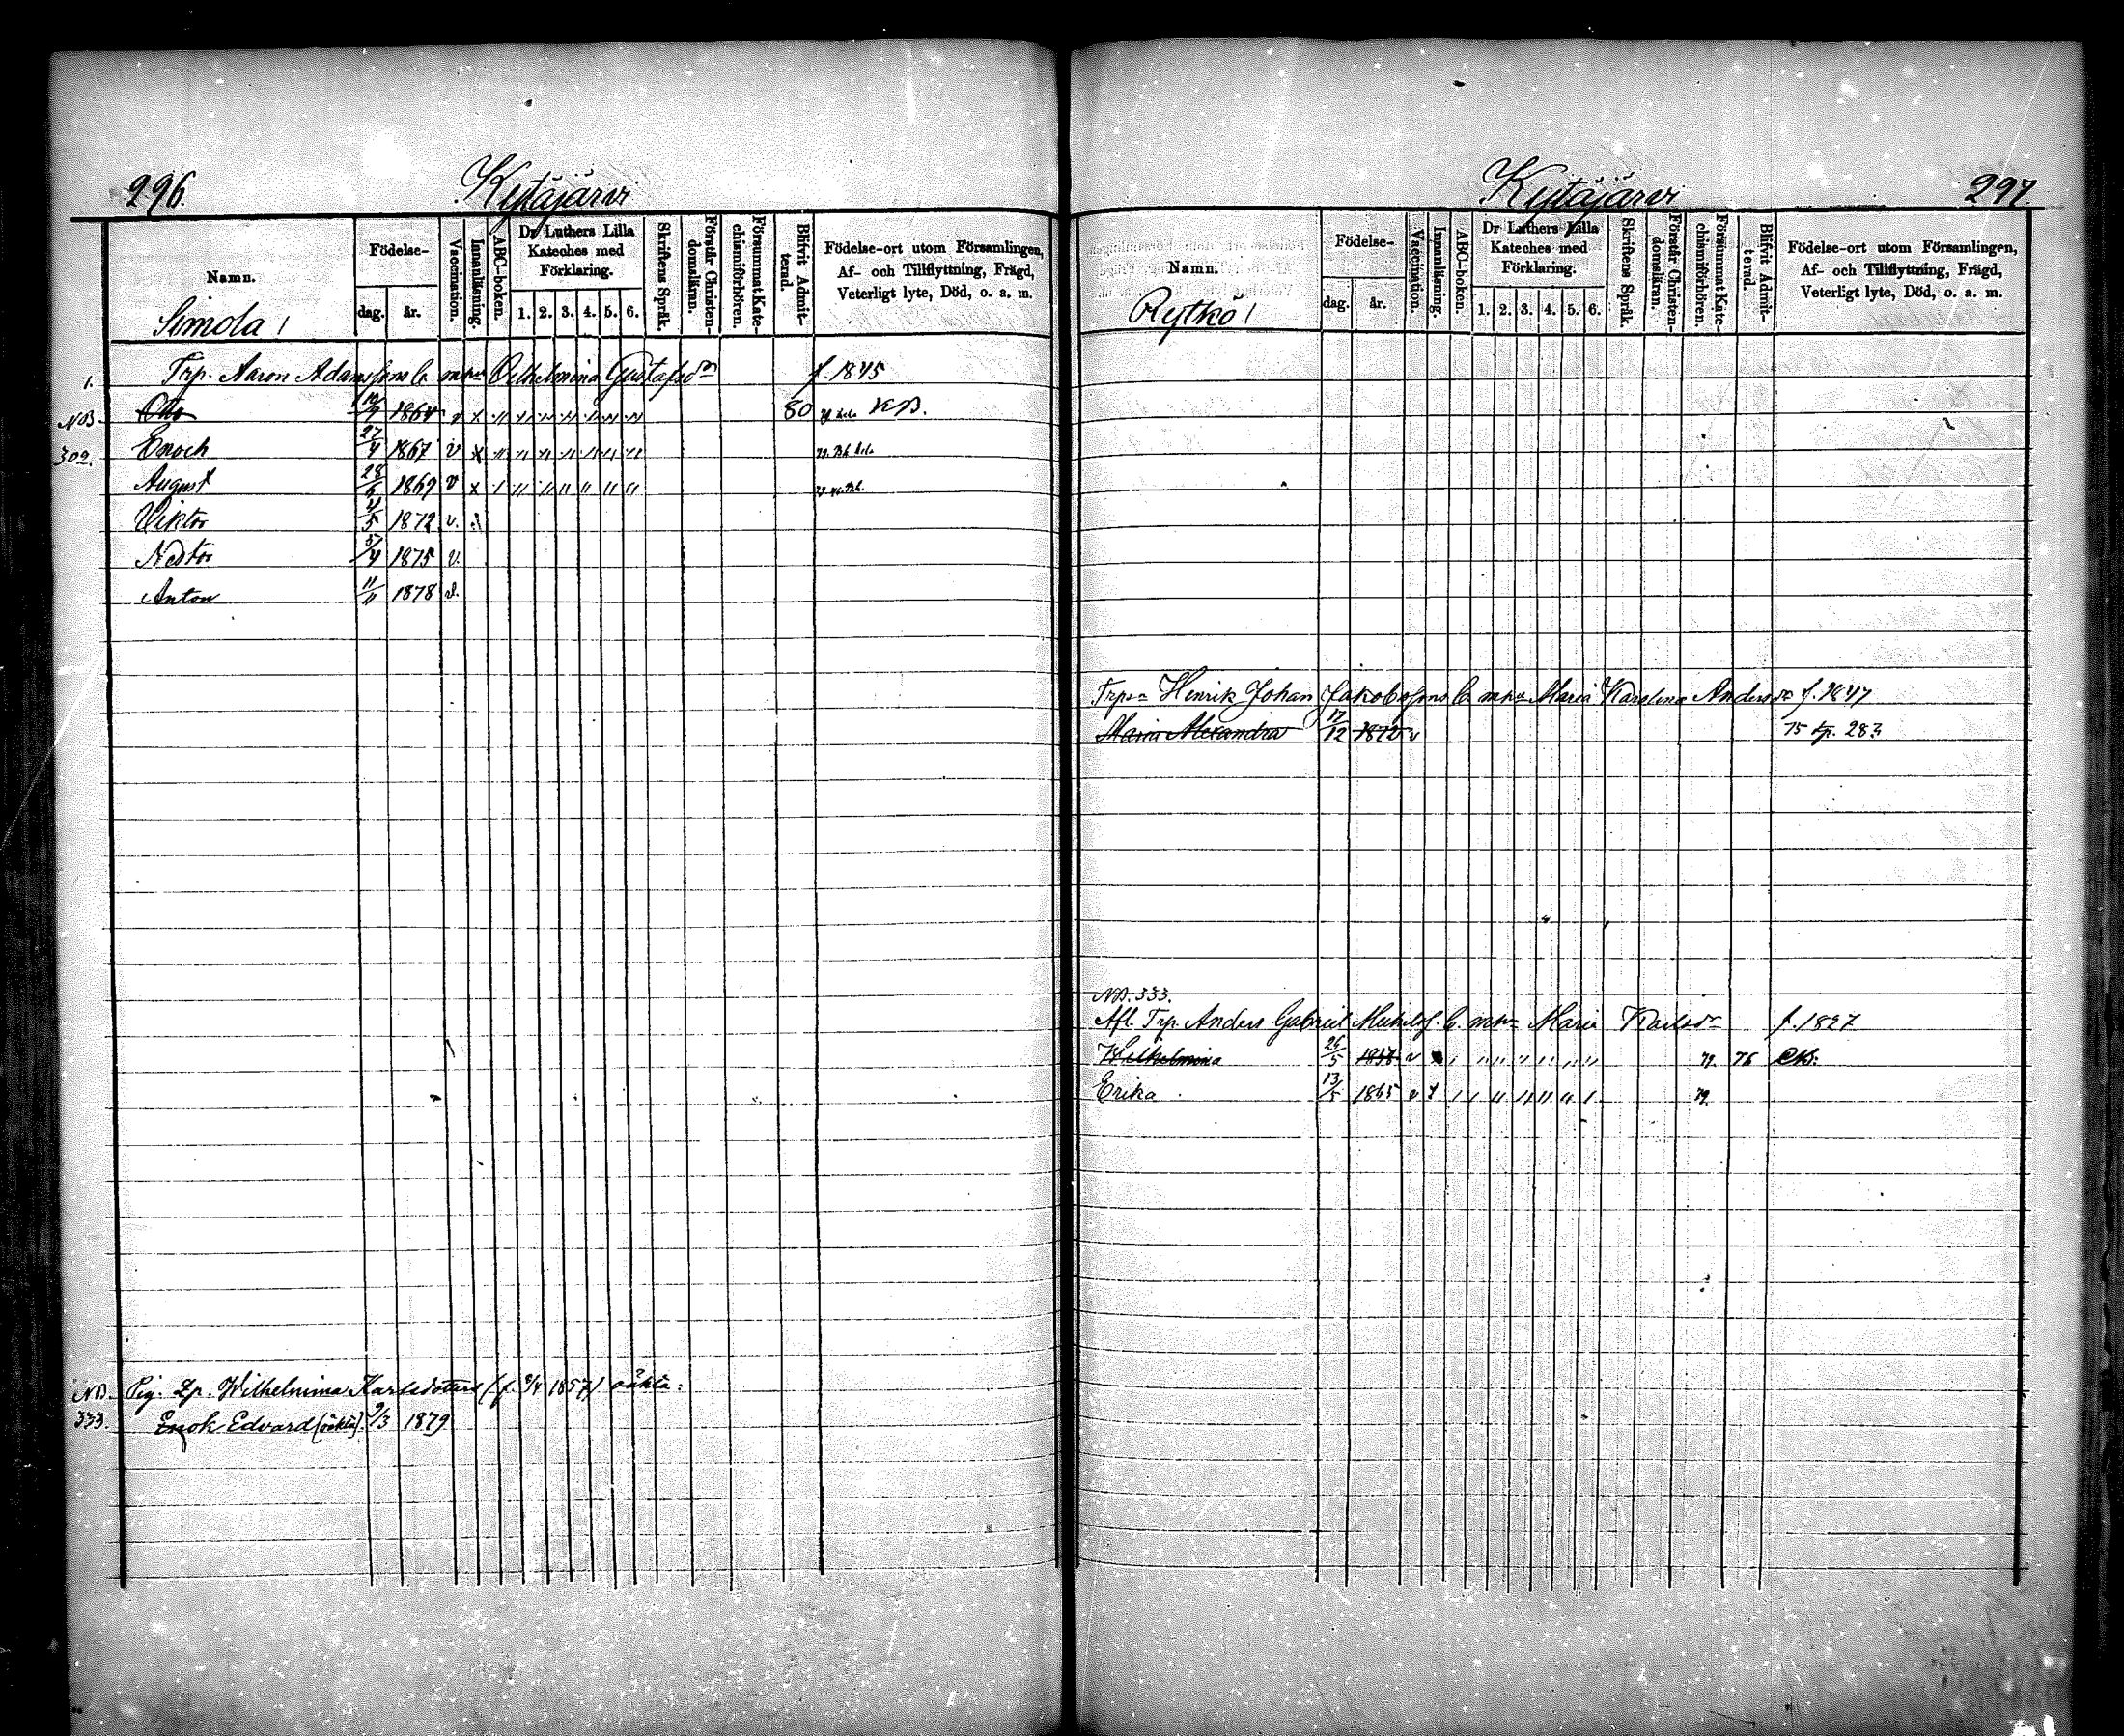 296.
Kytäjärvi
Namn.
Födelse-
dag.
år.
Vaccination.
Innanläsning.
ABC-boken.
Dr Luthers Lilla
Kateches med
Förklaring.
1. 2. 3. 4. 5. 6.
Skriftens Språk.
Förstår Christen-
domsläran.
Försummat Kate-
chismiförhören.
Blifvit Admit-
terad.
Födelse-ort utom Församlingen,
Af- och Tillflyttning, Frägd,
Veterligt lyte, Död, o. a. m.
Simola 1
1. Trp. Aaron Adamssons b. m. h. Vilhelmina Gustafsdr f. 1845
NB Otto 1864 v x 80 KB.
302. Enoch 27/4 1867 v x
August 28/6 1869 v x
Viktor 4/5 1872 v.
Nestor 1875 v.
Anton 11/11 1878 v.
NB. Pig. Lp. Wilhelmina Karlsdotters (f. 1857) oäkta:
333. Enok Edvard (oäkta) 9/3 1879
Kytäjärvi
297.
Namn.
Födelse-
dag.
år.
Vaccination.
Innanläsning.
ABC-boken.
Dr Luthers Lilla
Kateches med
Förklaring.
1. 2. 3. 4. 5. 6.
Skriftens Språk.
Förstår Christen-
domsläran.
Försummat Kate-
chismiförhören.
Blifvit Admit-
terad.
Födelse-ort utom Församlingen,
Af- och Tillflyttning, Frägd,
Veterligt lyte, Död, o. a. m.
Rytkö 1
Henrik Johan Jakobssons b. m. h. Maria Karolina Andersdr f. 1847
Maria Alexandra 17/12 1872 v 75 tp. 283
NB. 333.
Afl. Trp. Anders Gabriel b. m. h. Maria Karlsdr f. 1827
Wilhelmina 26/5 v 79. 76
Erika 13/5 1865 v 79.